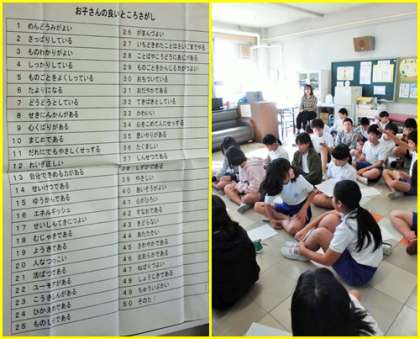 お子さんの良いところさがし
1 めんどうみがよい
2 さっぱりしている
3 ものわかりがよい
4 しっかりしている
5 ものごとをよくしっている
6 たよりになる
7 どうどうとしている
8 せきにんかんがある
9 心くばりがある
10 まじめである
11 だれにでもやさしくせっする
12 れいぎ正しい
13 自分できめる力がある
14 せいけつである
15 ゆうかんである
16 エネルギッシュ
17 せいしんてきにつよい
18 むじゃきである
19 ようきである
20 人なつっこい
21 活ぱつである
22 ユーモアがある
23 こうきしんがある
24 ひかえめである
25
26 がまんづよい
27 いちどきめたことはさいごまでやる
28 ことばやこうどうに
29 ものごとをかんじる力がつよい
30 おちついている
31 おだやかである
32 てきぱきとしている
33 かわいい
34 心をこめて人にせっする
35 思いやりがある
36 たくましい
37 しんせつである
39 やさしい
40 あいそうがよい
41 心がひろい
42 すなおである
43 きどらない
44 あたたかい
45 さわやかである
46 おおらかである
47 ねばりづよい
48 しょうじきである
49 ちゅういぶかい
50 その